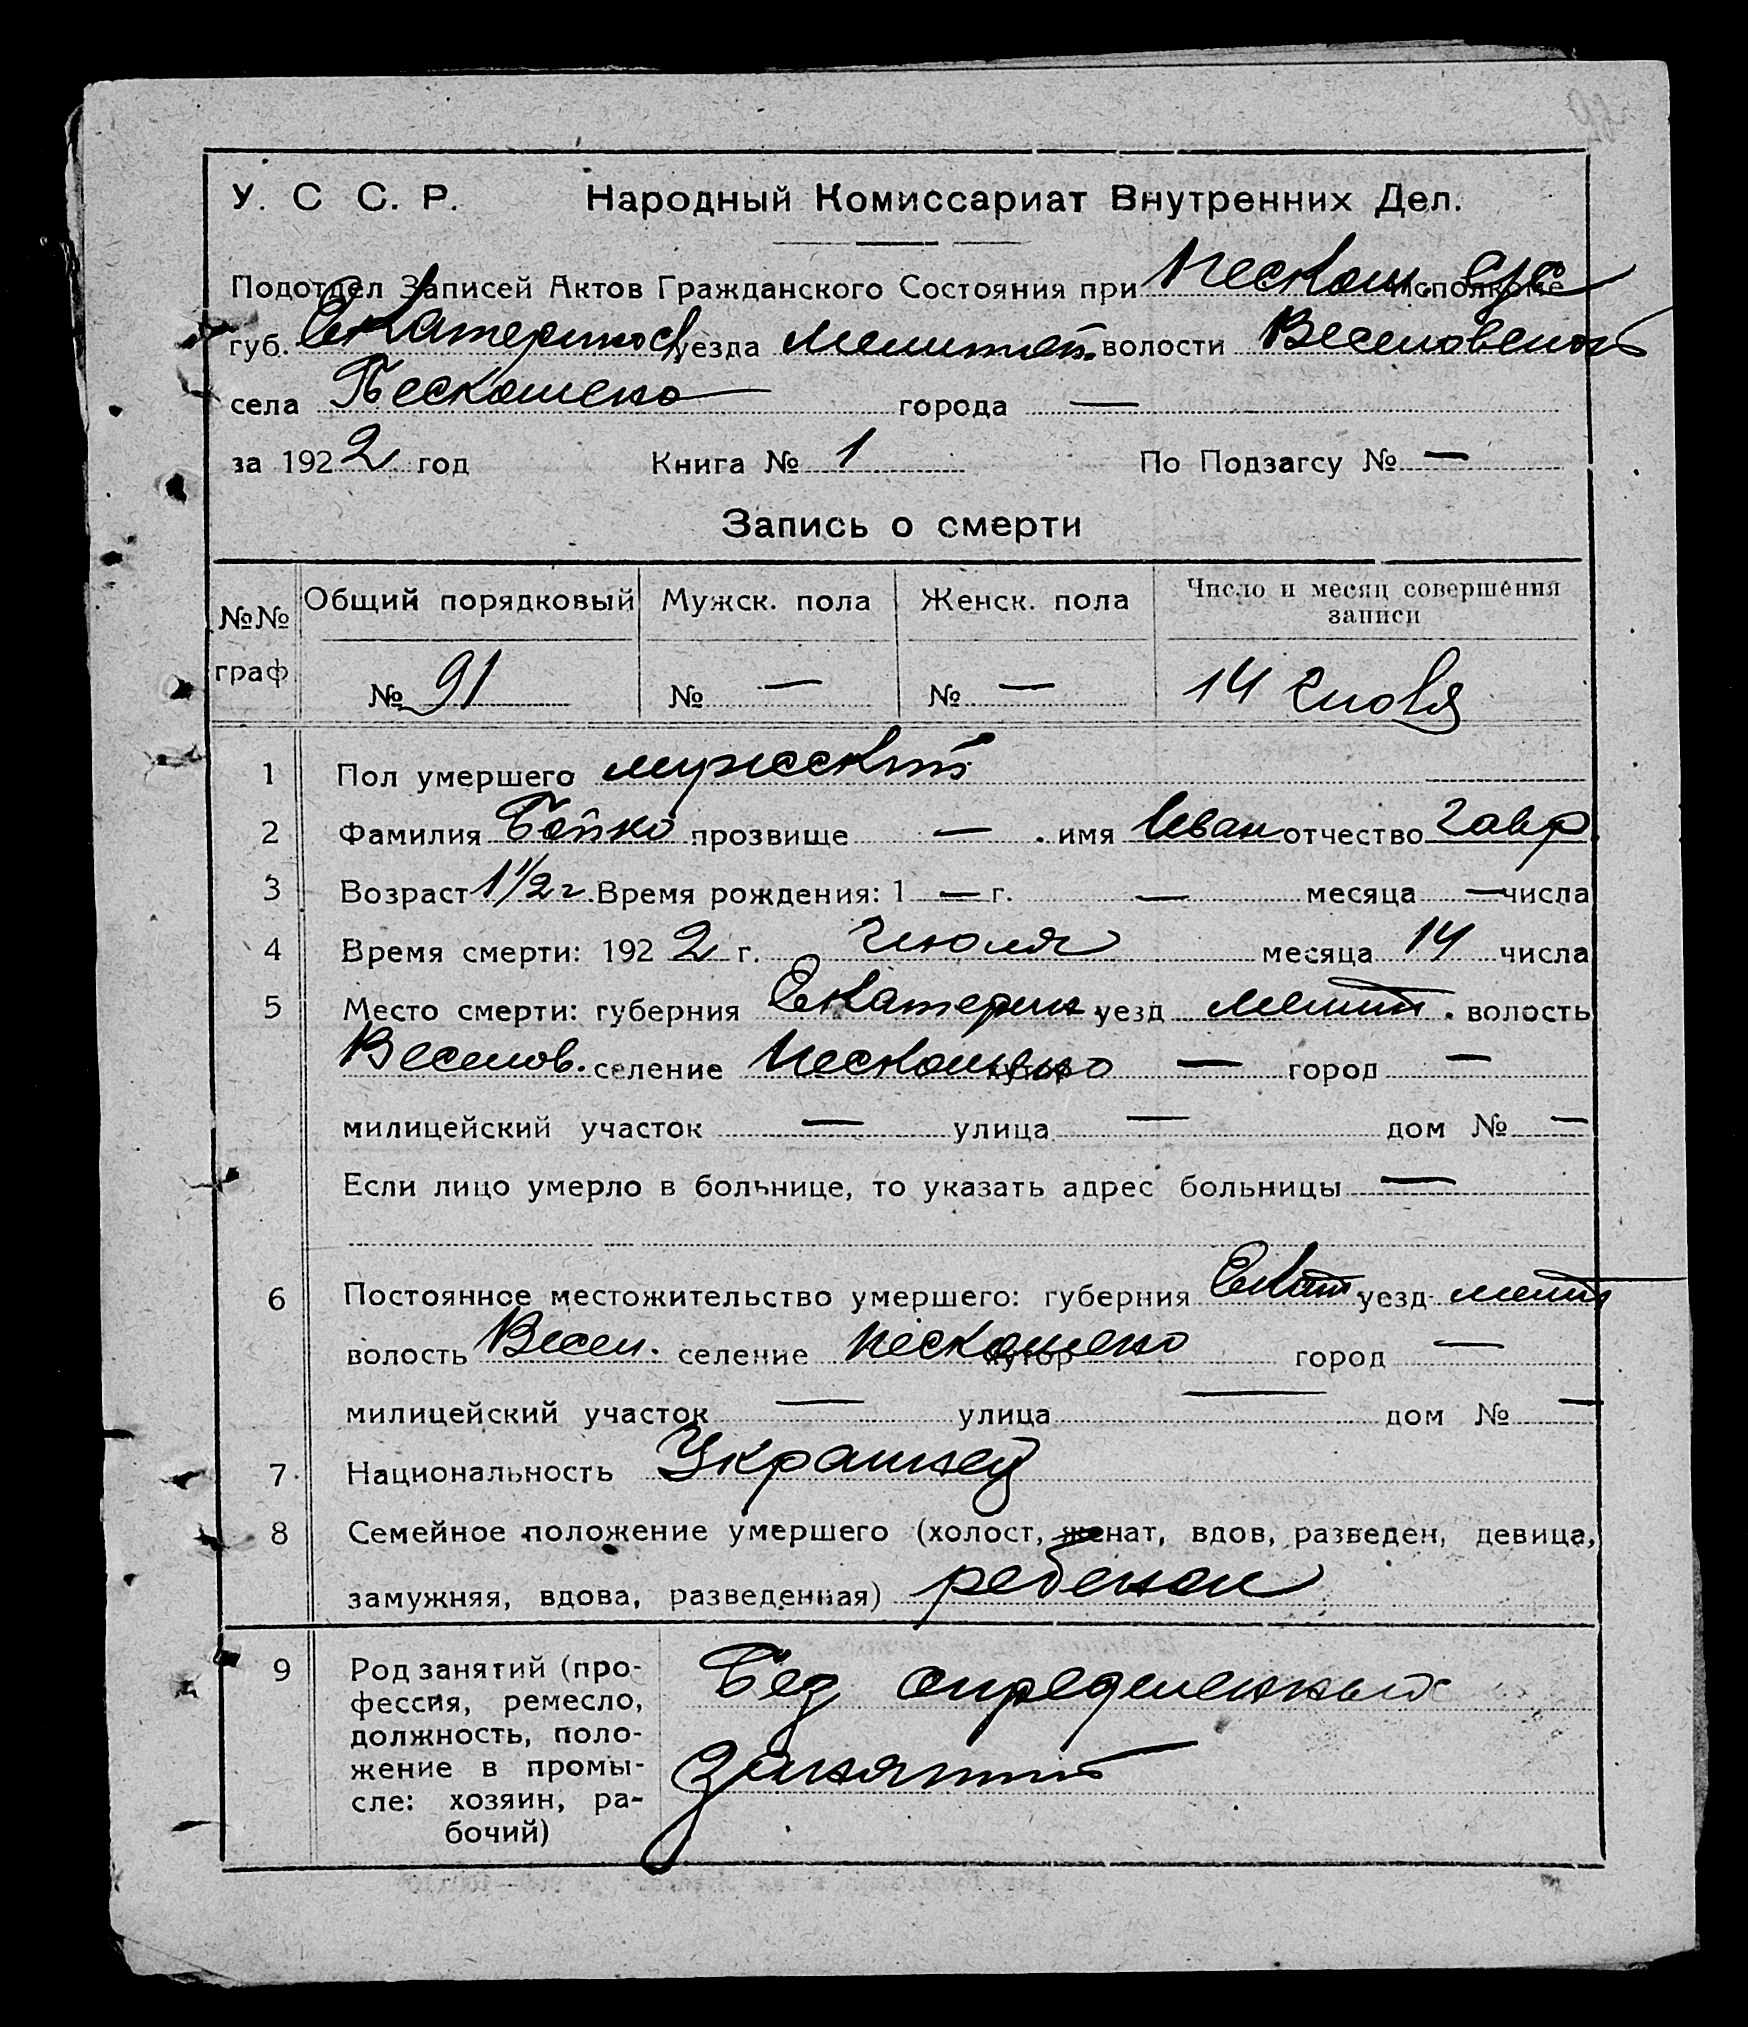 У. С С. Р. Народный Комиссариат Внутренних Дел.
Подотдел Записей Актов Гражданского Состояния при Пескош. Исполкоме
губ. Екатеринос уезда Мелитоп. волости Веселовской
села Пескошено города —
за 1922 год Книга № 1 По Подзагсу № —
Запись о смерти
№№ граф. Общий порядковый Мужск. пола Женск. пола Число и месяц совершения записи
№ 91 № — № — 14 Июля
1 Пол умершего мужеский
2 Фамилия Бойко прозвище — имя Иван отчество Гавр.
3 Возраст 1 1/2 г. Время рождения: 1 — г. — месяца — числа
4 Время смерти: 1922 г. Июля месяца 14 числа
5 Место смерти: губерния Екатерин. уезд Мелит. волость
Веселов. селение Пескошено хутор — город —
милицейский участок — улица — дом № —
Если лицо умерло в больнице, то указать адрес больницы —
6 Постоянное местожительство умершего: губерния Екат уезд Мелит
волость Весел. селение Пескошено хутор город —
милицейский участок — улица — дом № —
7 Национальность Украинец
8 Семейное положение умершего (холост, женат, вдов, разведен, девица,
замужняя, вдова, разведенная) ребенок
9 Род занятий (про- Без определенных
фессия, ремесло,
должность, поло- занятий
жение в промы-
сле: хозяин, ра-
бочий)